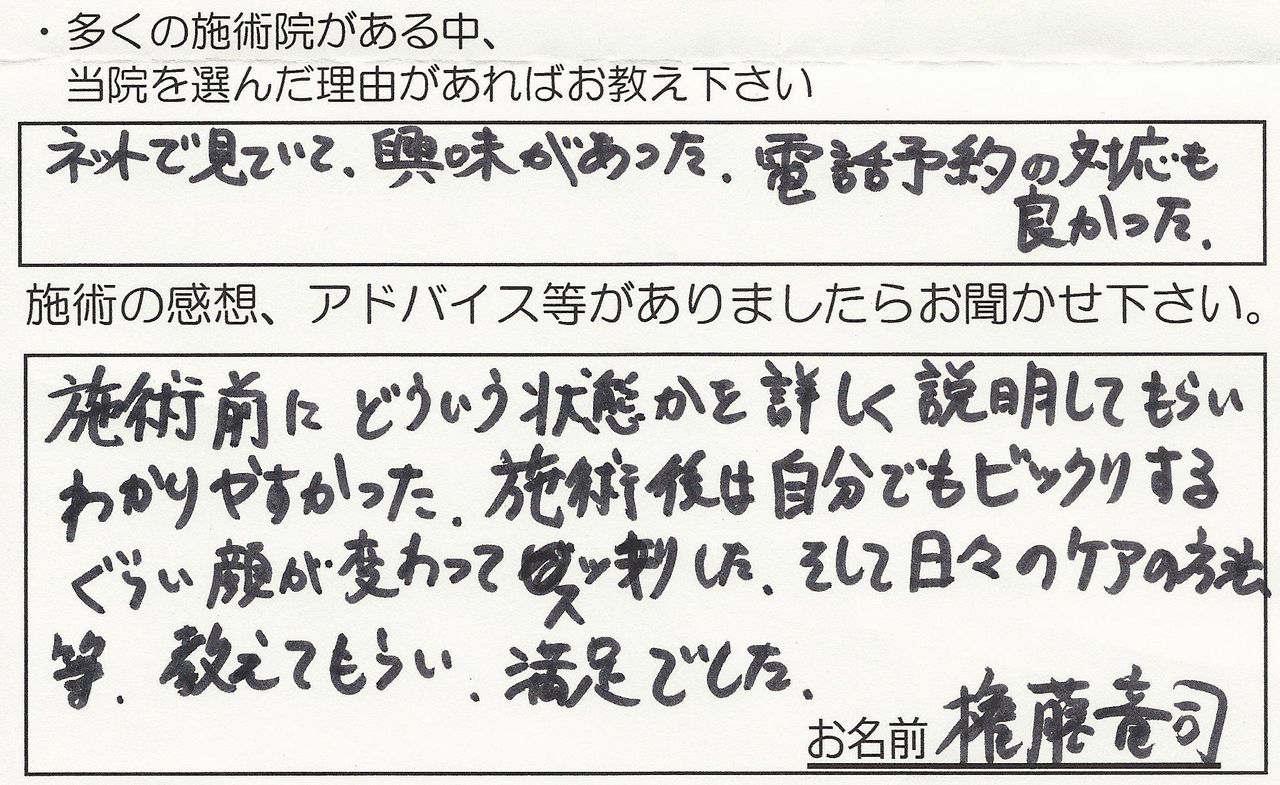 ・多くの施術院がある中、
当院を選んだ理由があればお教え下さい
ネットで見ていて、興味があった。電話予約の対応も
良かった。
施術の感想、アドバイス等がありましたらお聞かせ下さい。
施術前にどういう状態かを詳しく説明してもらい
わかりやすかった。施術後は自分でもビックリする
ぐらい顔が変わってスッキリした。そして日々のケアの方法
等、教えてもらい、満足でした。
お名前 権藤竜司